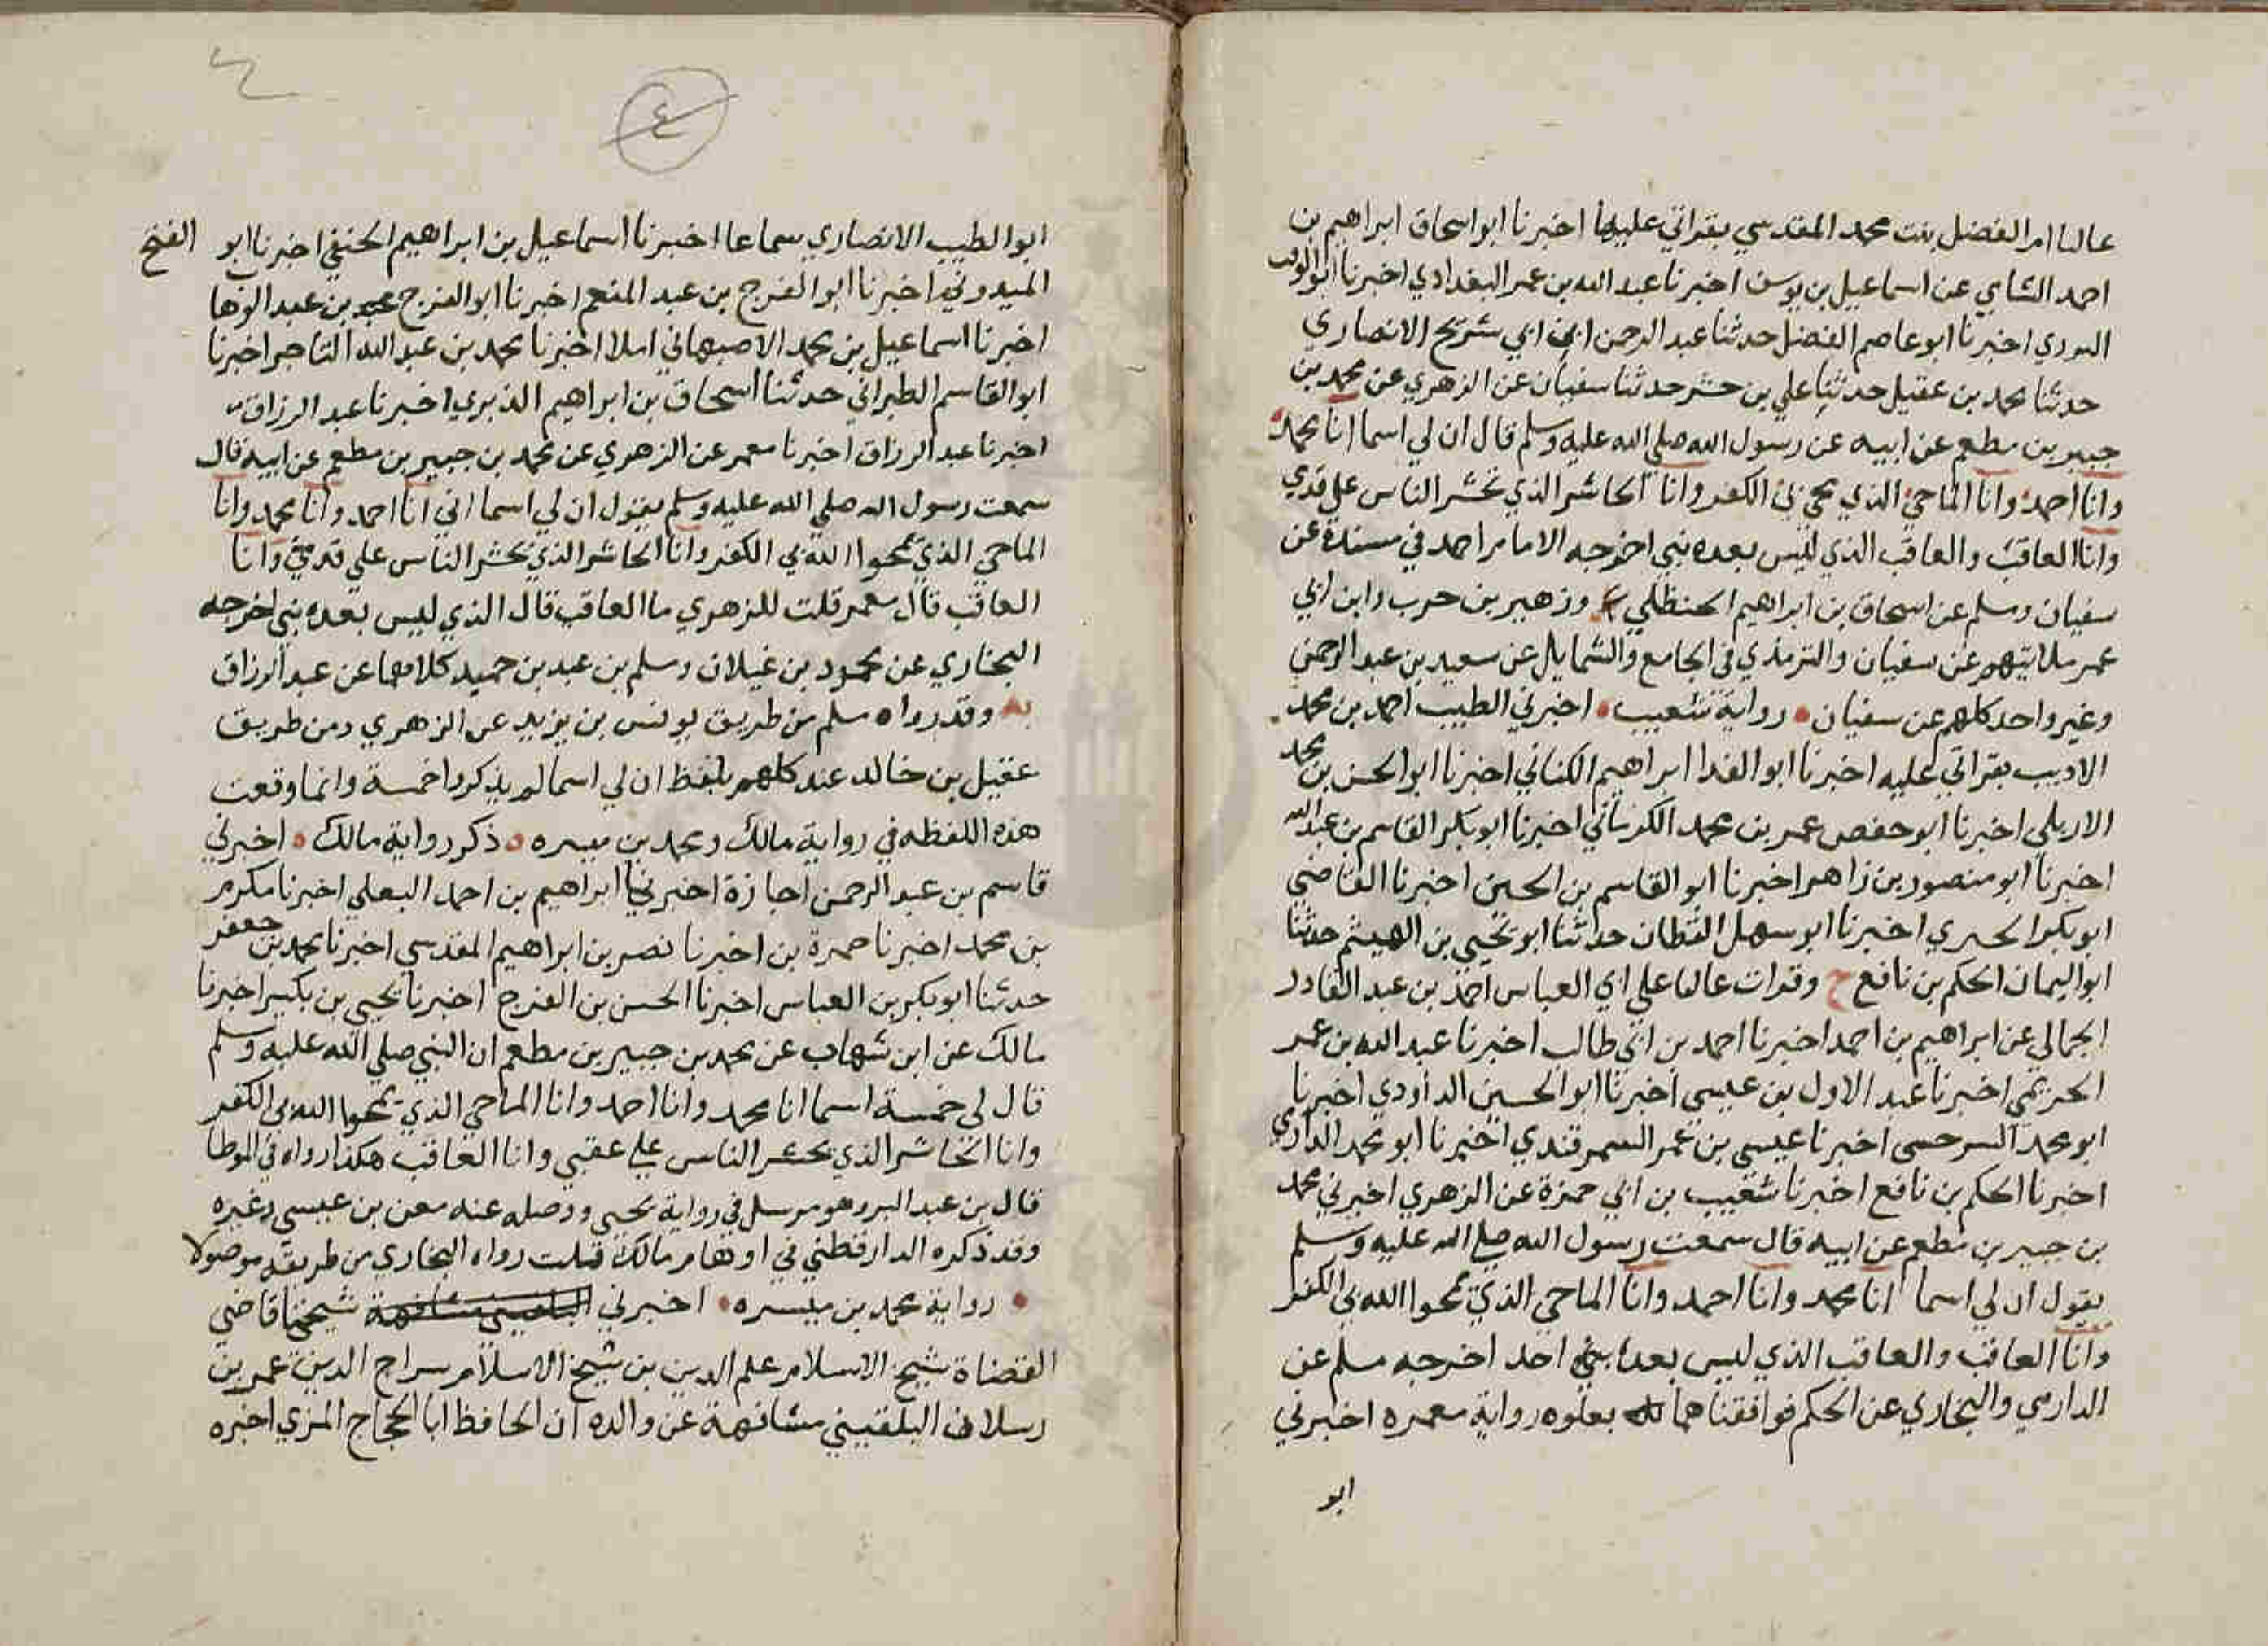 عاليا ام الفضل بنت محمد المقدسي بقراتي عليها اخبرنا ابو اسحاق ابراهيم بن
احمد الشامي عن اسماعيل بن يوسف اخبرنا عبد الله بن عمر البغدادي اخبرنا ابو الوقت
اخبرنا ابو عاصم الفضل حدثنا عبد الرحمن ابن ابي شريح الانصاري
حدثنا محمد بن عقيل حدثنا علي بن خشرم حدثنا سفيان عن الزهري عن محمد بن
جبير بن مطعم عن ابيه عن رسول الله صلي الله عليه وسلم قال ان لي اسما انا محمد
وانا احمد وانا الماحي الذي يمحي بي الكفر وانا الحاشر الذي يحشر الناس علي قدمي
وانا العاقب والعاقب الذي ليس بعده نبي اخرجه الامام احمد في مسنده عن
سفيان ومسلم عن اسحاق بن ابراهيم الحنظلي وزهير بن حرب وابن ابي
عمر ثلاثتهم عن سفيان والترمذي في الجامع والشمايل عن سعيد بن عبد الرحمن
وغير واحد كلهم عن سفيان رواية شعيب اخبرني الطيب احمد بن محمد
الاديب بقراتي عليه اخبرنا ابو الفدا ابراهيم الكناني اخبرنا ابو الحسن بن محمد
الاربلي اخبرنا ابو حفص عمر بن محمد الكرماني اخبرنا ابو بكر القاسم بن عبد الله
اخبرنا ابو منصور بن زاهر اخبرنا ابو القاسم بن الحسين اخبرنا القاضي
ابو بكر الحيري اخبرنا ابو سهل القطان حدثنا ابو يحيي بن الهيثم حدثنا
ابو اليمان الحكم بن نافع ح وقرات عاليا علي ابي العباس احمد بن عبد القادر
الجمالي عن ابراهيم بن احمد اخبرنا احمد بن ابي طالب اخبرنا عبد الله بن عمر
الحريمي اخبرنا عبد الاول بن عيسي اخبرنا ابو الحسين الداودي اخبرنا
ابو محمد السرخسي اخبرنا عيسي بن عمر السمرقندي اخبرنا ابو محمد الدارمي
اخبرنا الحكم بن نافع اخبرنا شعيب بن ابي حمزة عن الزهري اخبرني محمد
بن جبير بن مطعم عن ابيه قال سمعت رسول الله صلي الله عليه وسلم
يقول ان لي اسما انا محمد وانا احمد وانا الماحي الذي يمحوا الله بي الكفر
وانا العاقب والعاقب الذي ليس بعده احد اخرجه مسلم عن
الدارمي والبخاري عن الحكم فوافقناهما بعلوه رواية معمره اخبرني
ابو
٤
ابو الطيب الانصاري سماعا اخبرنا اسماعيل بن ابراهيم الحنفي اخبرنا ابو الفتح
الميدوني اخبرنا ابو الفرج بن عبد المنعم اخبرنا ابو الفرج بن عبد الوهاب
اخبرنا اسماعيل بن محمد الاصبهاني املا اخبرنا محمد بن عبد الله التاجر اخبرنا
ابو القاسم الطبراني حدثنا اسحاق بن ابراهيم الدبري اخبرنا عبد الرزاق
اخبرنا عبد الرزاق اخبرنا معمر عن الزهري عن محمد بن جبير بن مطعم عن ابيه قال
سمعت رسول الله صلي الله عليه وسلم يقول ان لي اسما اني انا احمد وانا محمد وانا
الماحي الذي يمحوا الله بي الكفر وانا الحاشر الذي يحشر الناس علي قدمي وانا
العاقب قال معمر قلت للزهري ما العاقب قال الذي ليس بعده نبي اخرجه
البخاري عن محمود بن غيلان ومسلم بن عبد بن حميد كلاهما عن عبد الرزاق
به وقد رواه مسلم من طريق يونس بن يزيد عن الزهري ومن طريق
عقيل بن خالد عند كلهم بلفظ ان لي اسما لم يذكروا خمسة وانما وقعت
هذه اللفظه في رواية مالك ومحمد بن ميسره ذكر رواية مالك اخبرني
قاسم بن عبد الرحمن اجازة اخبرنا ابراهيم بن احمد البعلي اخبرنا مكرم
بن محمد اخبرنا حمزة بن اخبرنا نصر بن ابراهيم المقدسي اخبرنا محمد بن جعفر
حدثنا ابو بكر بن العباس اخبرنا الحسن بن الفرج اخبرنا يحيي بن بكير اخبرنا
مالك عن ابن شهاب عن محمد بن جبير بن مطعم ان النبي صلي الله عليه وسلم
قال لي خمسة اسما انا محمد وانا احمد وانا الماحي الذي يمحوا الله بي الكفر
وانا الحاشر الذي يحشر الناس علي عقبي وانا العاقب هكذا رواه في الموطا
قال بن عبد البر وهو مرسل في رواية يحيي ووصله عنه معن بن عيسي وغيره
وقد ذكره الدارقطني في اوهام مالك قلت رواه البخاري من طريقه موصولا
رواية محمد بن ميسره اخبرني شيخنا قاضي
القضاة شيخ الاسلام علم الدين بن شيخ الاسلام سراج الدين عمر بن
رسلان البلقيني مشافهة عن والده ان الحافظ ابا الحجاج المزي اخبره